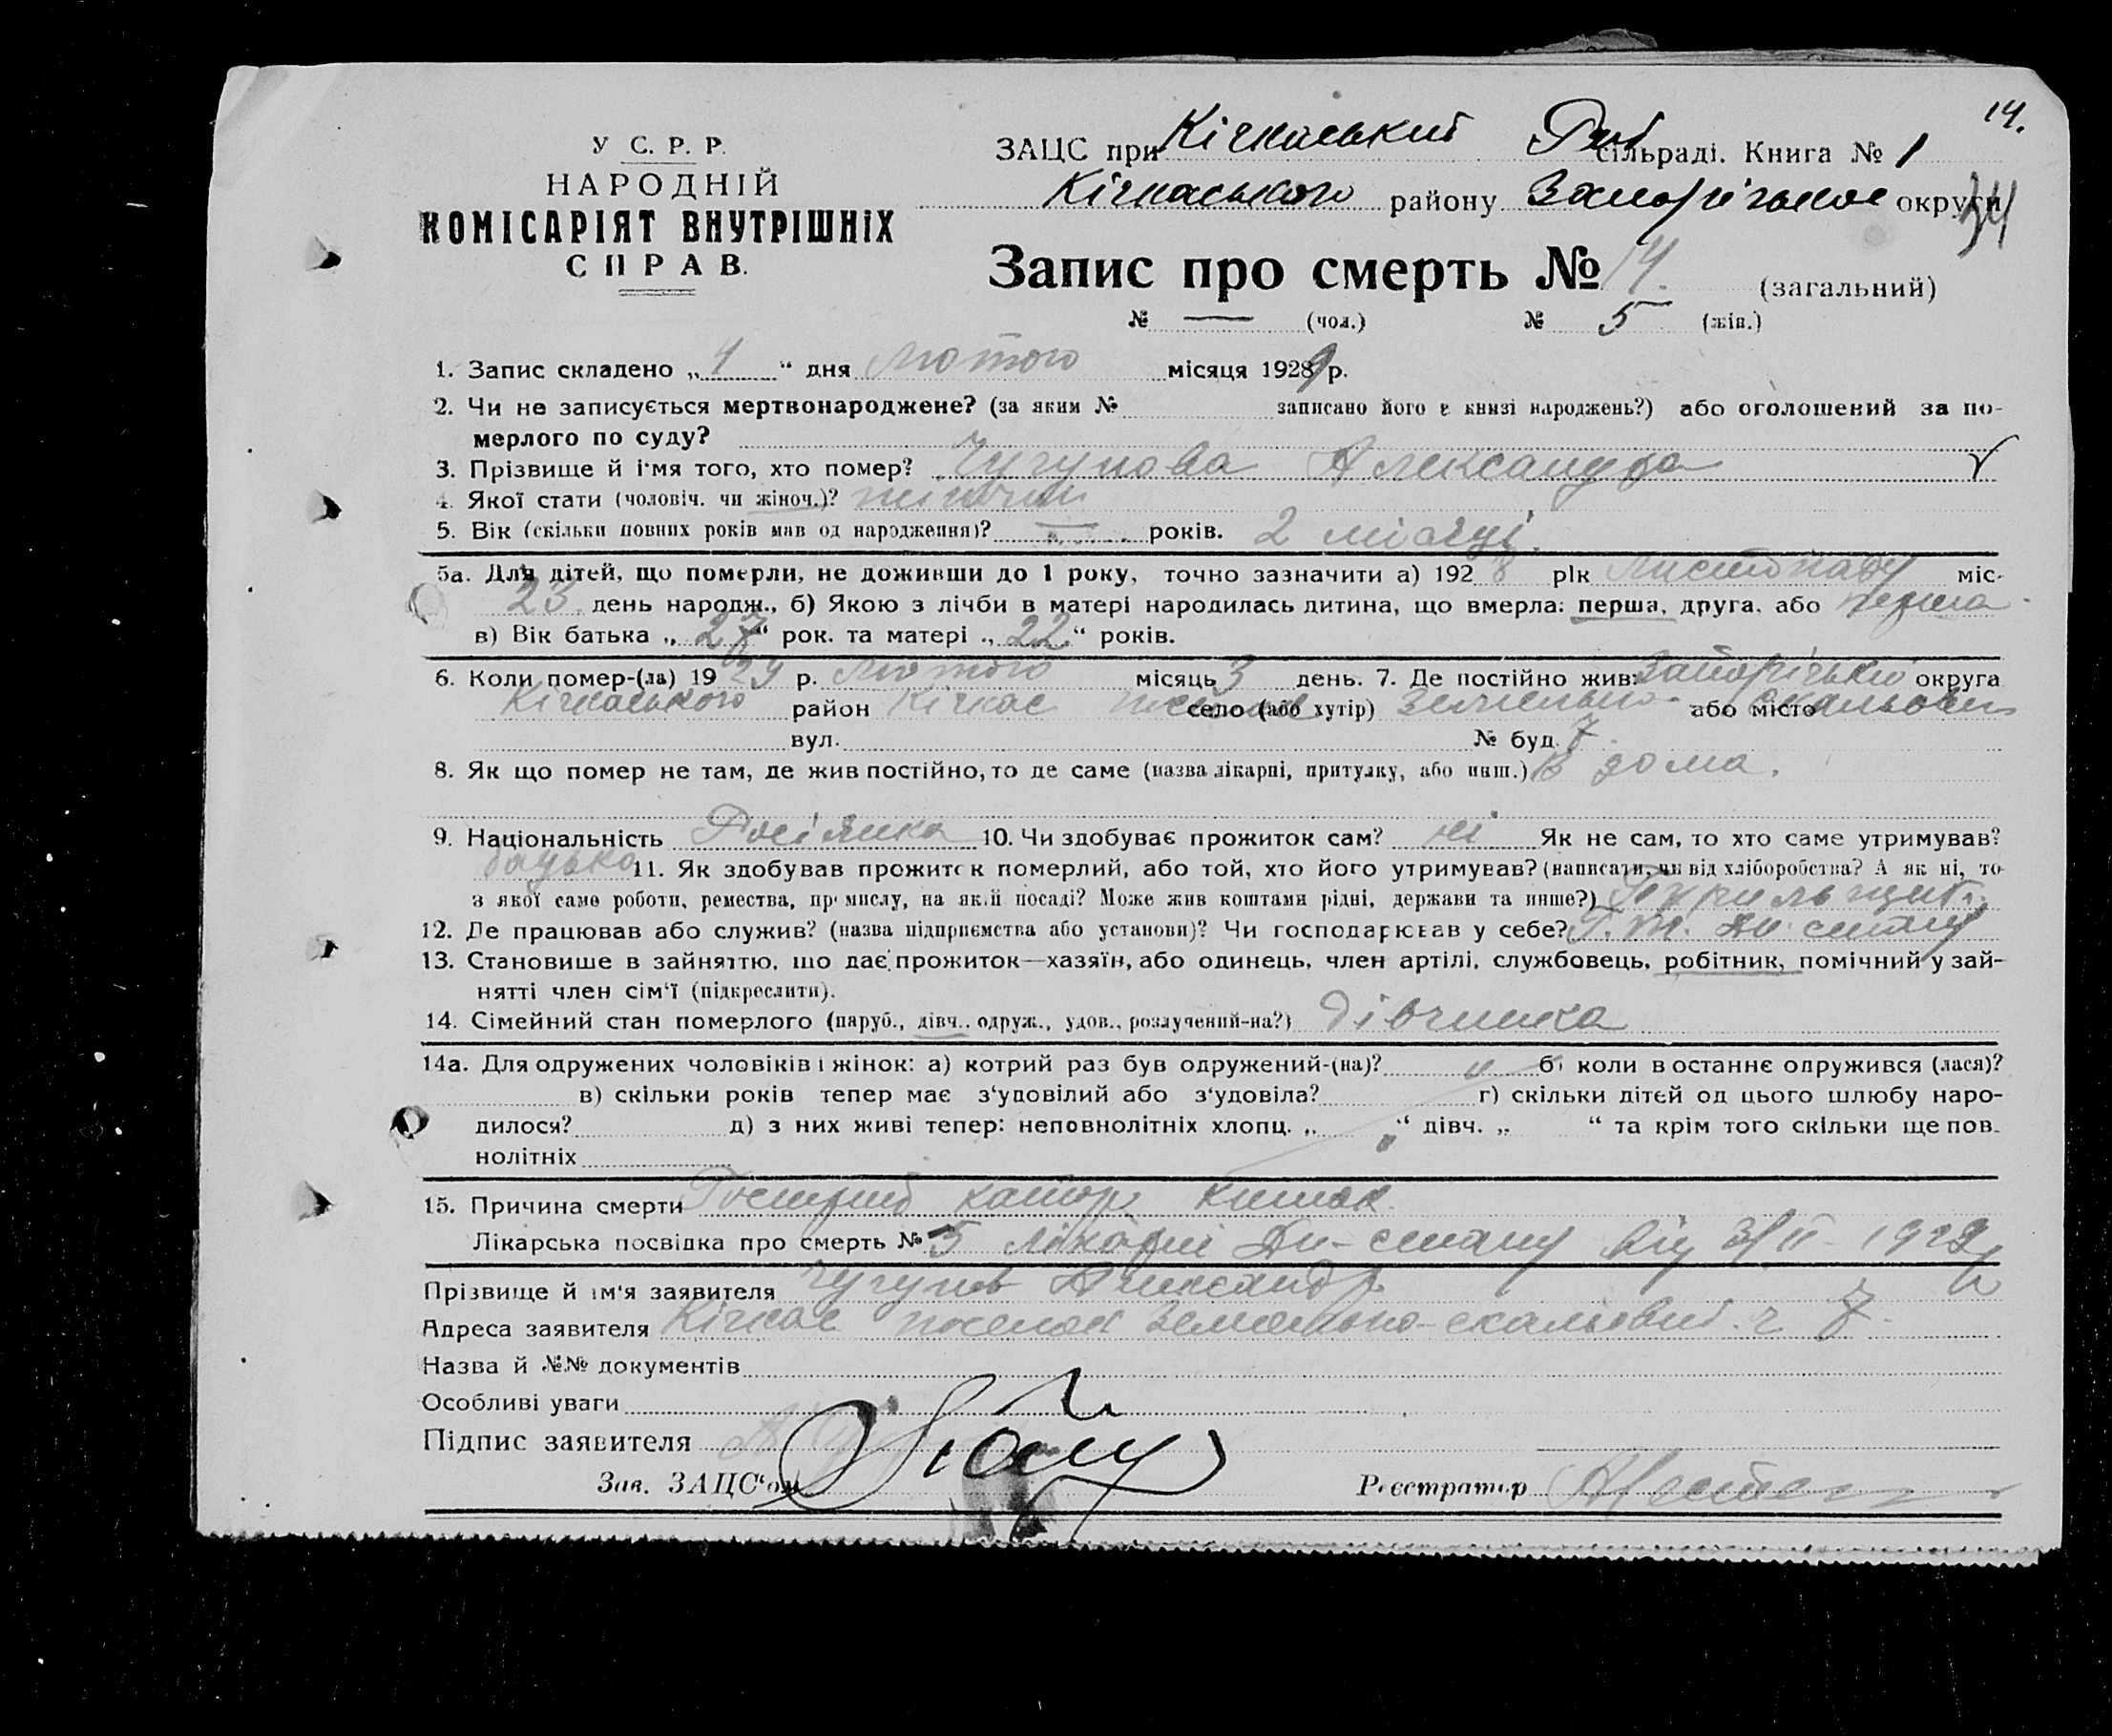 14.
У С. Р. Р.
НАРОДНІЙ
КОМІСАРІЯТ ВНУТРІШНІХ
СПРАВ.
ЗАЦС при Кічкаський сільраді. Книга № 1
Кічкаського району Запорізькое округи 34
Запис про смерть № 14. (загальний)
№ — (чол.) № 5 (жін.)
1. Запис складено „ 4 “ дня Лютого місяця 1929 р.
2. Чи не записується мертвонароджене? (за яким № записано його в книзі народжень?) або оголошений за по-
мерлого по суду?
3. Прізвище й ім'я того, хто помер? Чугунова Александра
4. Якої стати (чоловіч. чи жіноч.)? жіночий
5. Вік (скільки повних років мав од народження)? — років. 2 місяці.
5а. Для дітей, що померли, не доживши до 1 року, точно зазначити а) 1928 рік Листопаду міс-
23 день народж., б) Якою з лічби в матері народилась дитина, що вмерла: перша, друга, або перша
в) Вік батька „ 27 “ рок. та матері „ 22 “ років.
6. Коли помер-(ла) 1929 р. Лютого місяць 3 день. 7. Де постійно жив: Запорізької округа
Кічкаського район Кічкас поселок село (або хутір) Земельно- або місто скальовий
вул. № буд. 7
8. Як що помер не там, де жив постійно, то де саме (назва лікарні, притулку, або инш.) В дома.
9. Національність Росіянка 10. Чи здобуває прожиток сам? ні Як не сам, то хто саме утримував?
батько 11. Як здобував прожиток померлий, або той, хто його утримував? (написати, чи від хліборобства? А як ні, то
з якої саме роботи, ремества, промислу, на якій посаді? Може жив коштами рідні, держави та инше?) Бурильщик
12. Де працював або служив? (назва підприємства або установи)? Чи господарював у себе? Дн. стану
13. Становише в зайняттю, що дає прожиток—хазяїн, або одинець, член артілі, службовець, робітник, помічний у зай-
нятті член сім'ї (підкреслити).
14. Сімейний стан померлого (паруб., дівч., одруж., удов., розлучений-на?) дівчинка
14а. Для одружених чоловіків і жінок: а) котрий раз був одружений-(на)? б) коли востаннє одружився (лася)?
в) скільки років тепер має з'удовілий або з'удовіла? г) скільки дітей од цього шлюбу наро-
дилося? д) з них живі тепер: неповнолітніх хлопц. „ “ дівч. „ “ та крім того скільки ще пов-
нолітніх
15. Причина смерти Гострий катар кишок.
Лікарська посвідка про смерть № 5 лікарні Дн-стану від 3/II-1929 р
Прізвище й ім'я заявителя Чугунов Александр.
Адреса заявителя Кічкас поселок Земельно-скальовий. ч 7.
Назва й №№ документів
Особливі уваги
Підпис заявителя
Зав. ЗАЦС'ом Реєстратор